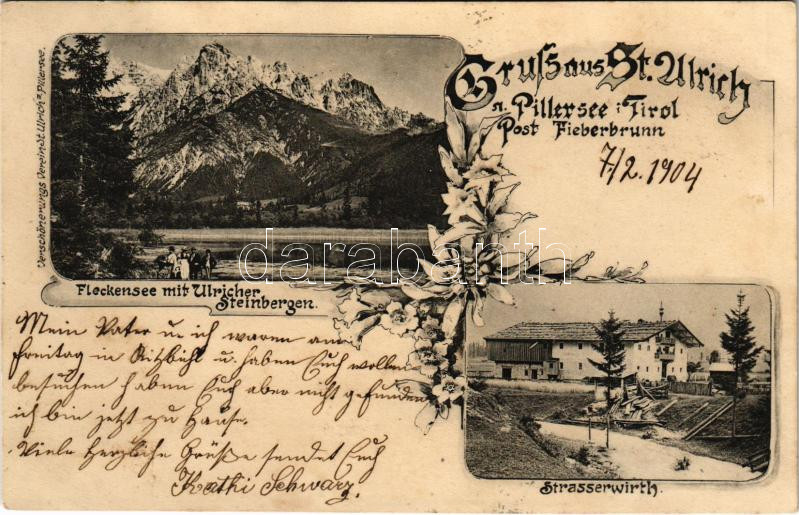 Verschönerungs Verein St. Ulrich a. Pillersee.
Gruß aus St. Ulrich
a. Pillersee i. Tirol
Post Fieberbrunn
7/2. 1904
darabanth
Fleckensee mit Ulricher
Steinbergen.
Mein Vater u. ich waren am
Freitag in Kitzbichl u. haben Euch wollen
besuchen haben Euch aber nicht gefunden
ich bin jetzt zu Hause.
Viele herzliche Grüße sendet Euch
Kathi Schwarz.
Strasserwirth.